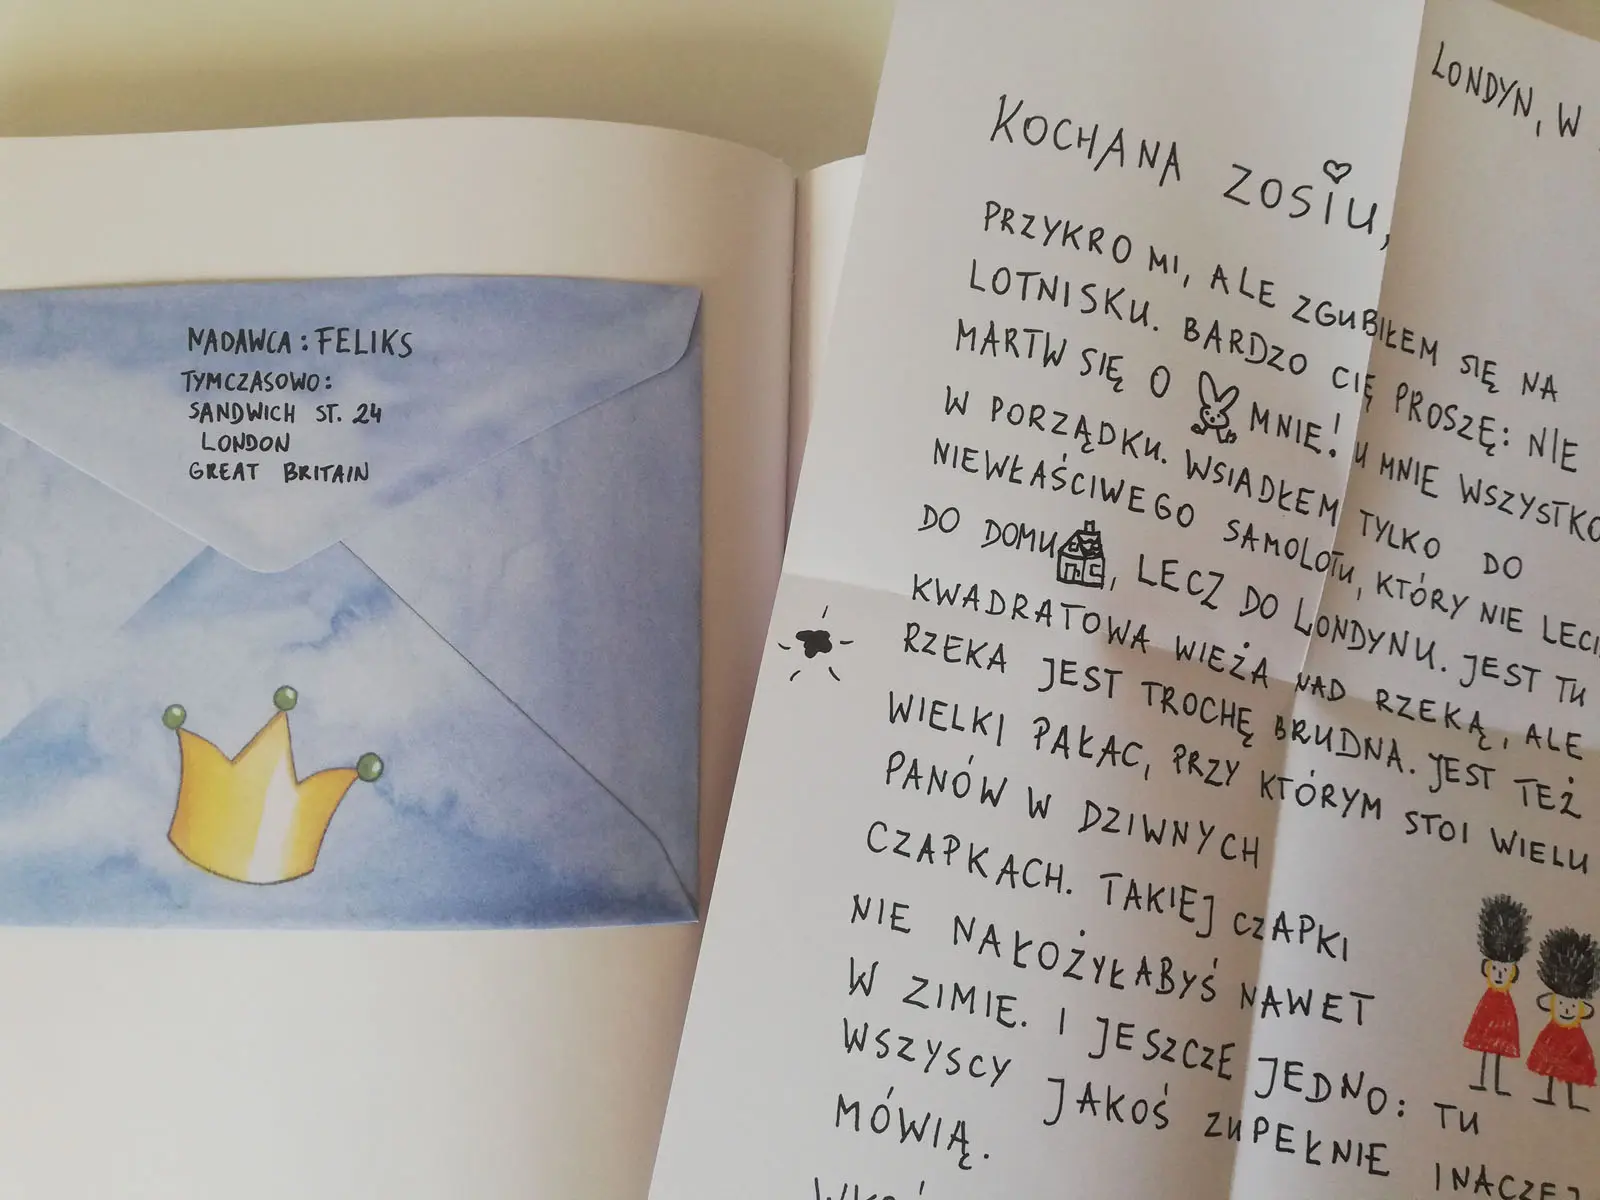 NADAWCA: FELIKS
TYMCZASOWO:
SANDWICH ST. 24
LONDON
GREAT BRITAIN
LONDYN, W
KOCHANA ZOSIU,
PRZYKRO MI, ALE ZGUBIŁEM SIĘ NA
LOTNISKU. BARDZO CIĘ PROSZĘ: NIE
MARTW SIĘ O MNIE! U MNIE WSZYSTKO
W PORZĄDKU. WSIADŁEM TYLKO DO
NIEWŁAŚCIWEGO SAMOLOTU, KTÓRY NIE LECI
DO DOMU, LECZ DO LONDYNU. JEST TU
KWADRATOWA WIEŻA NAD RZEKĄ, ALE
RZEKA JEST TROCHĘ BRUDNA. JEST TEŻ
WIELKI PAŁAC, PRZY KTÓRYM STOI WIELU
PANÓW W DZIWNYCH
CZAPKACH. TAKIEJ CZAPKI
NIE NAŁOŻYŁABYŚ NAWET
W ZIMIE. I JESZCZE JEDNO: TU
WSZYSCY JAKOŚ ZUPEŁNIE INACZEJ
MÓWIĄ.